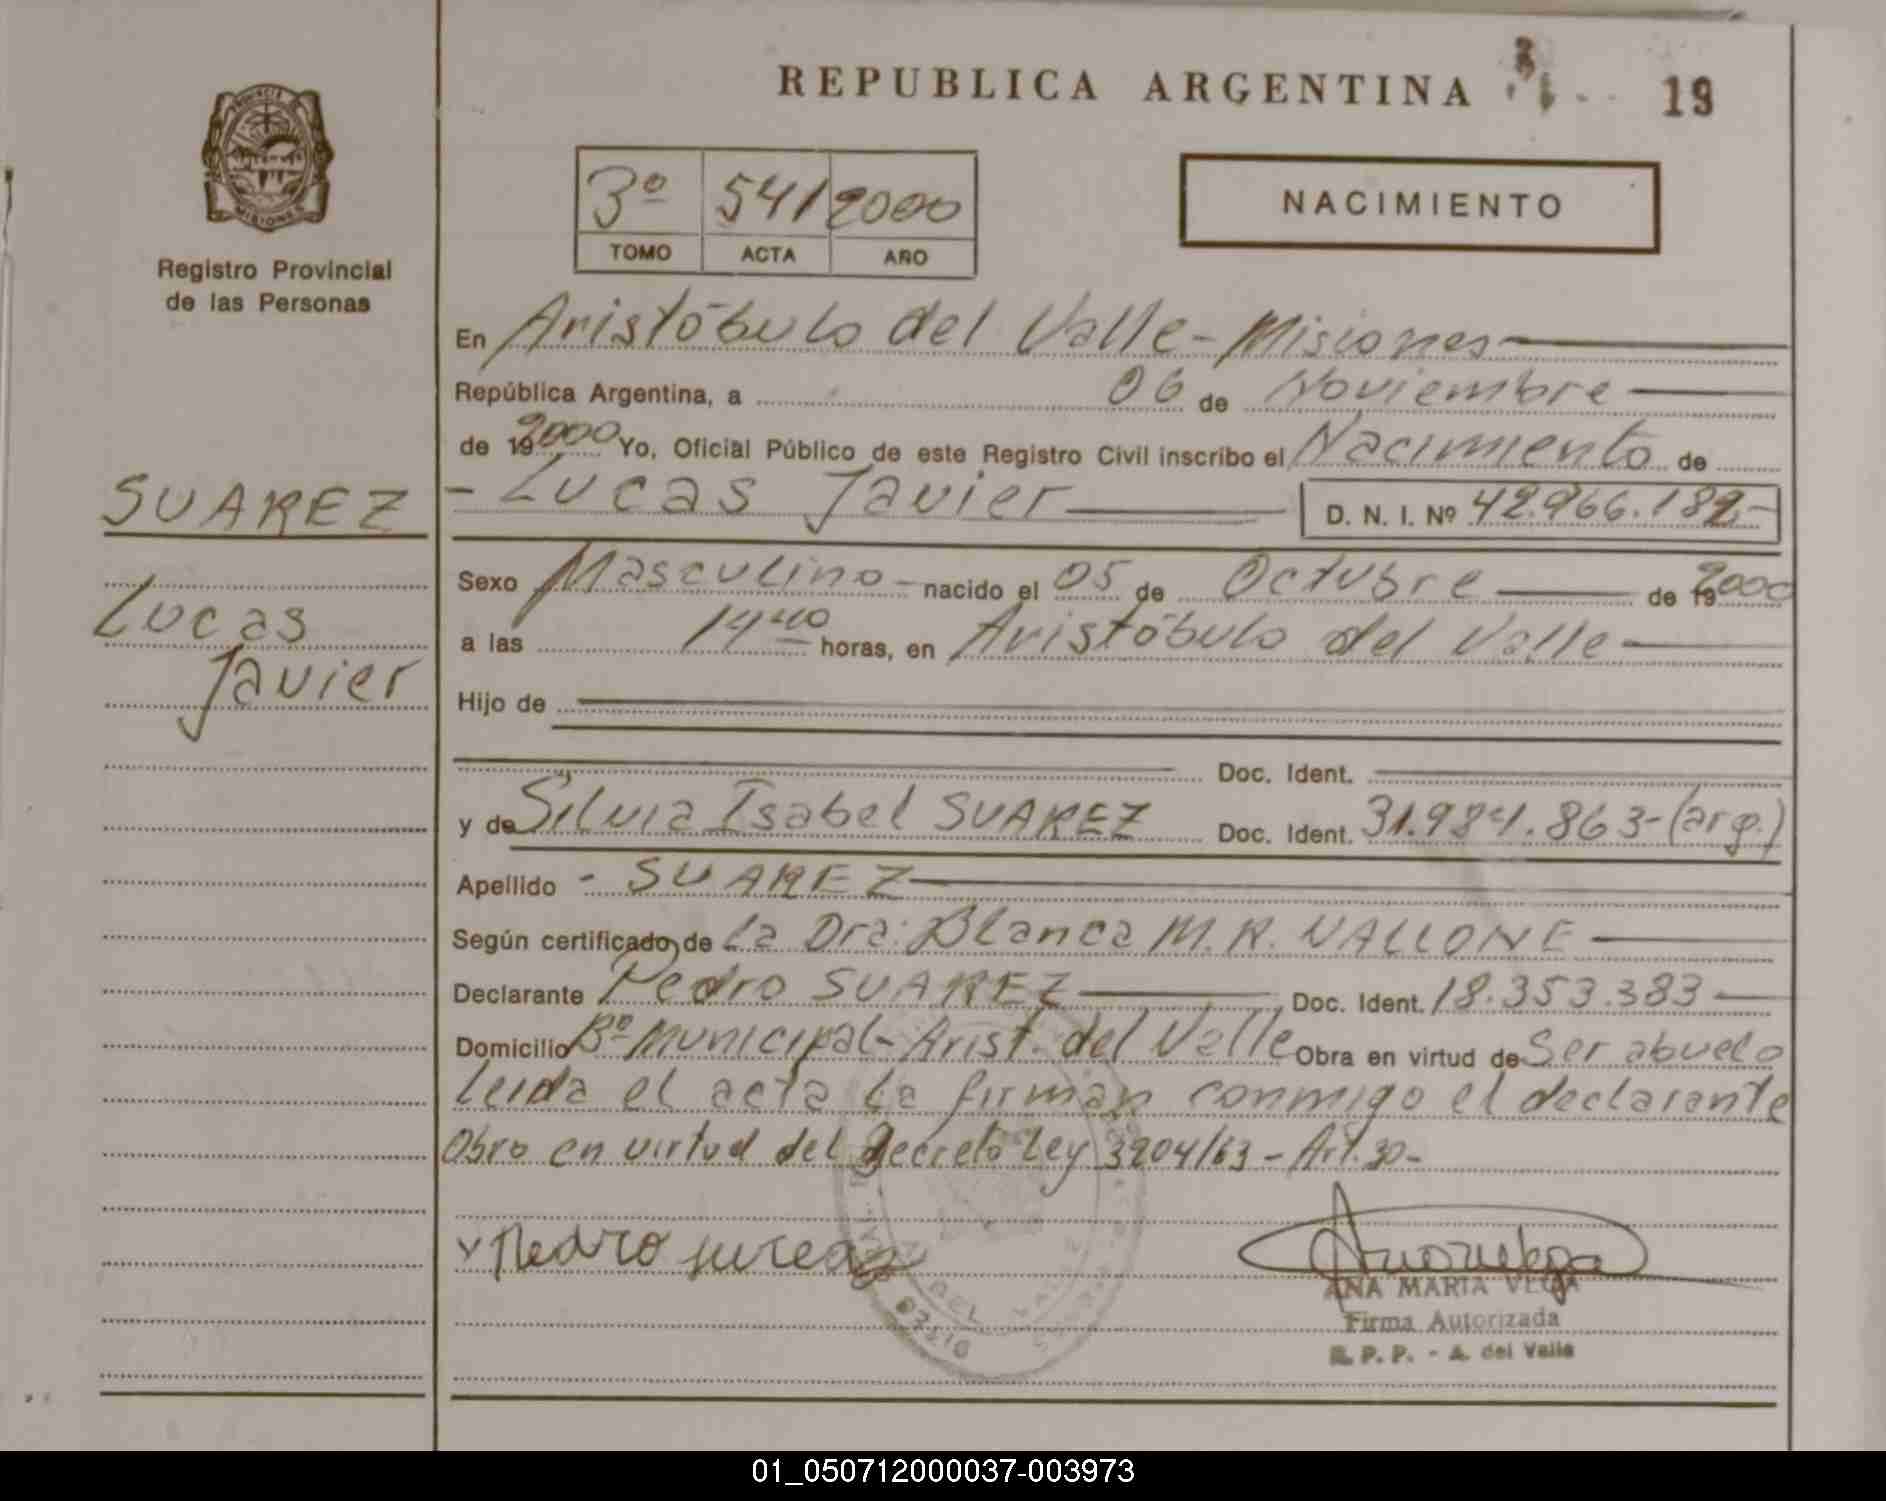 REPUBLICA ARGENTINA
19
PROVINCIA DE
MISIONES
Registro Provincial
de las Personas
3º 541 2000
TOMO ACTA AÑO
NACIMIENTO
En Aristóbulo del Valle - Misiones
República Argentina, a 06 de Noviembre
de 19 2000 Yo, Oficial Público de este Registro Civil inscribo el Nacimiento de
SUAREZ
- Lucas Javier D. N. I. Nº 42.966.182.-
Lucas
Javier
Sexo Masculino - nacido el 05 de Octubre de 19 2000
a las 14 40 horas, en Aristóbulo del Valle
Hijo de
Doc. Ident.
y de Silvia Isabel SUAREZ Doc. Ident. 31.984.863-(arg.)
Apellido - SUAREZ
Según certificado de La Dra. Blanca M. R. VALLONE
Declarante Pedro SUAREZ Doc. Ident. 18.353.383
Domicilio Bº Municipal - Arist. del Valle Obra en virtud de Ser abuelo
Leida el acta la firman conmigo el declarante
Obro en virtud del Decreto Ley 3204/63 - Art. 30 -
Pedro
DEL VALLE
ANA MARIA VEGA
Firma Autorizada
R. P. P. - A. del Valle
01_050712000037-003973